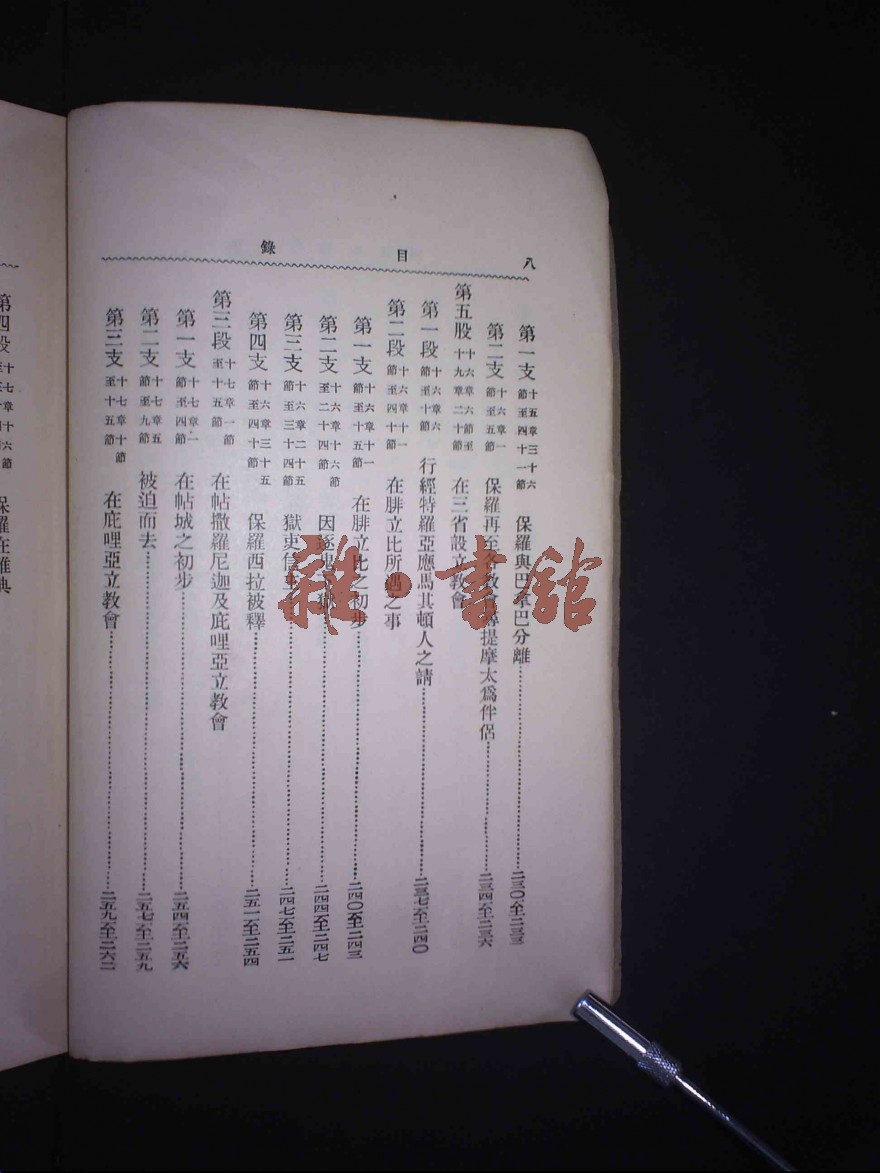 八
目錄
第一支 十五章三十六節至四十一節 保羅與巴拿巴分離 二三〇至二三三
第二支 十六章一節至五節 保羅再至各教會尋提摩太爲伴侶 二三四至二三六
第五股 十六章六節至十九章二十節 在三省設立教會
第一段 十六章六節至十節 行經特羅亞應馬其頓人之請 二三七至二四〇
第二段 十六章十一節至四十節 在腓立比所遇之事
第一支 十六章十一節至十五節 在腓立比之初步 二四〇至二四三
第二支 十六章十六節至二十四節 因逐鬼 獄 二四四至二四七
第三支 十六章二十五節至三十四節 獄吏信主 二四七至二五一
第四支 十六章三十五節至四十節 保羅西拉被釋 二五一至二五四
第三段 十七章一節至十五節 在帖撒羅尼迦及庇哩亞立教會
第一支 十七章一節至四節 在帖城之初步 二五四至二五六
第二支 十七章五節至九節 被迫而去 二五七至二五九
第三支 十七章十節至十五節 在庇哩亞立教會 二五九至二六二
第四段 保羅在雅典
雜·書館